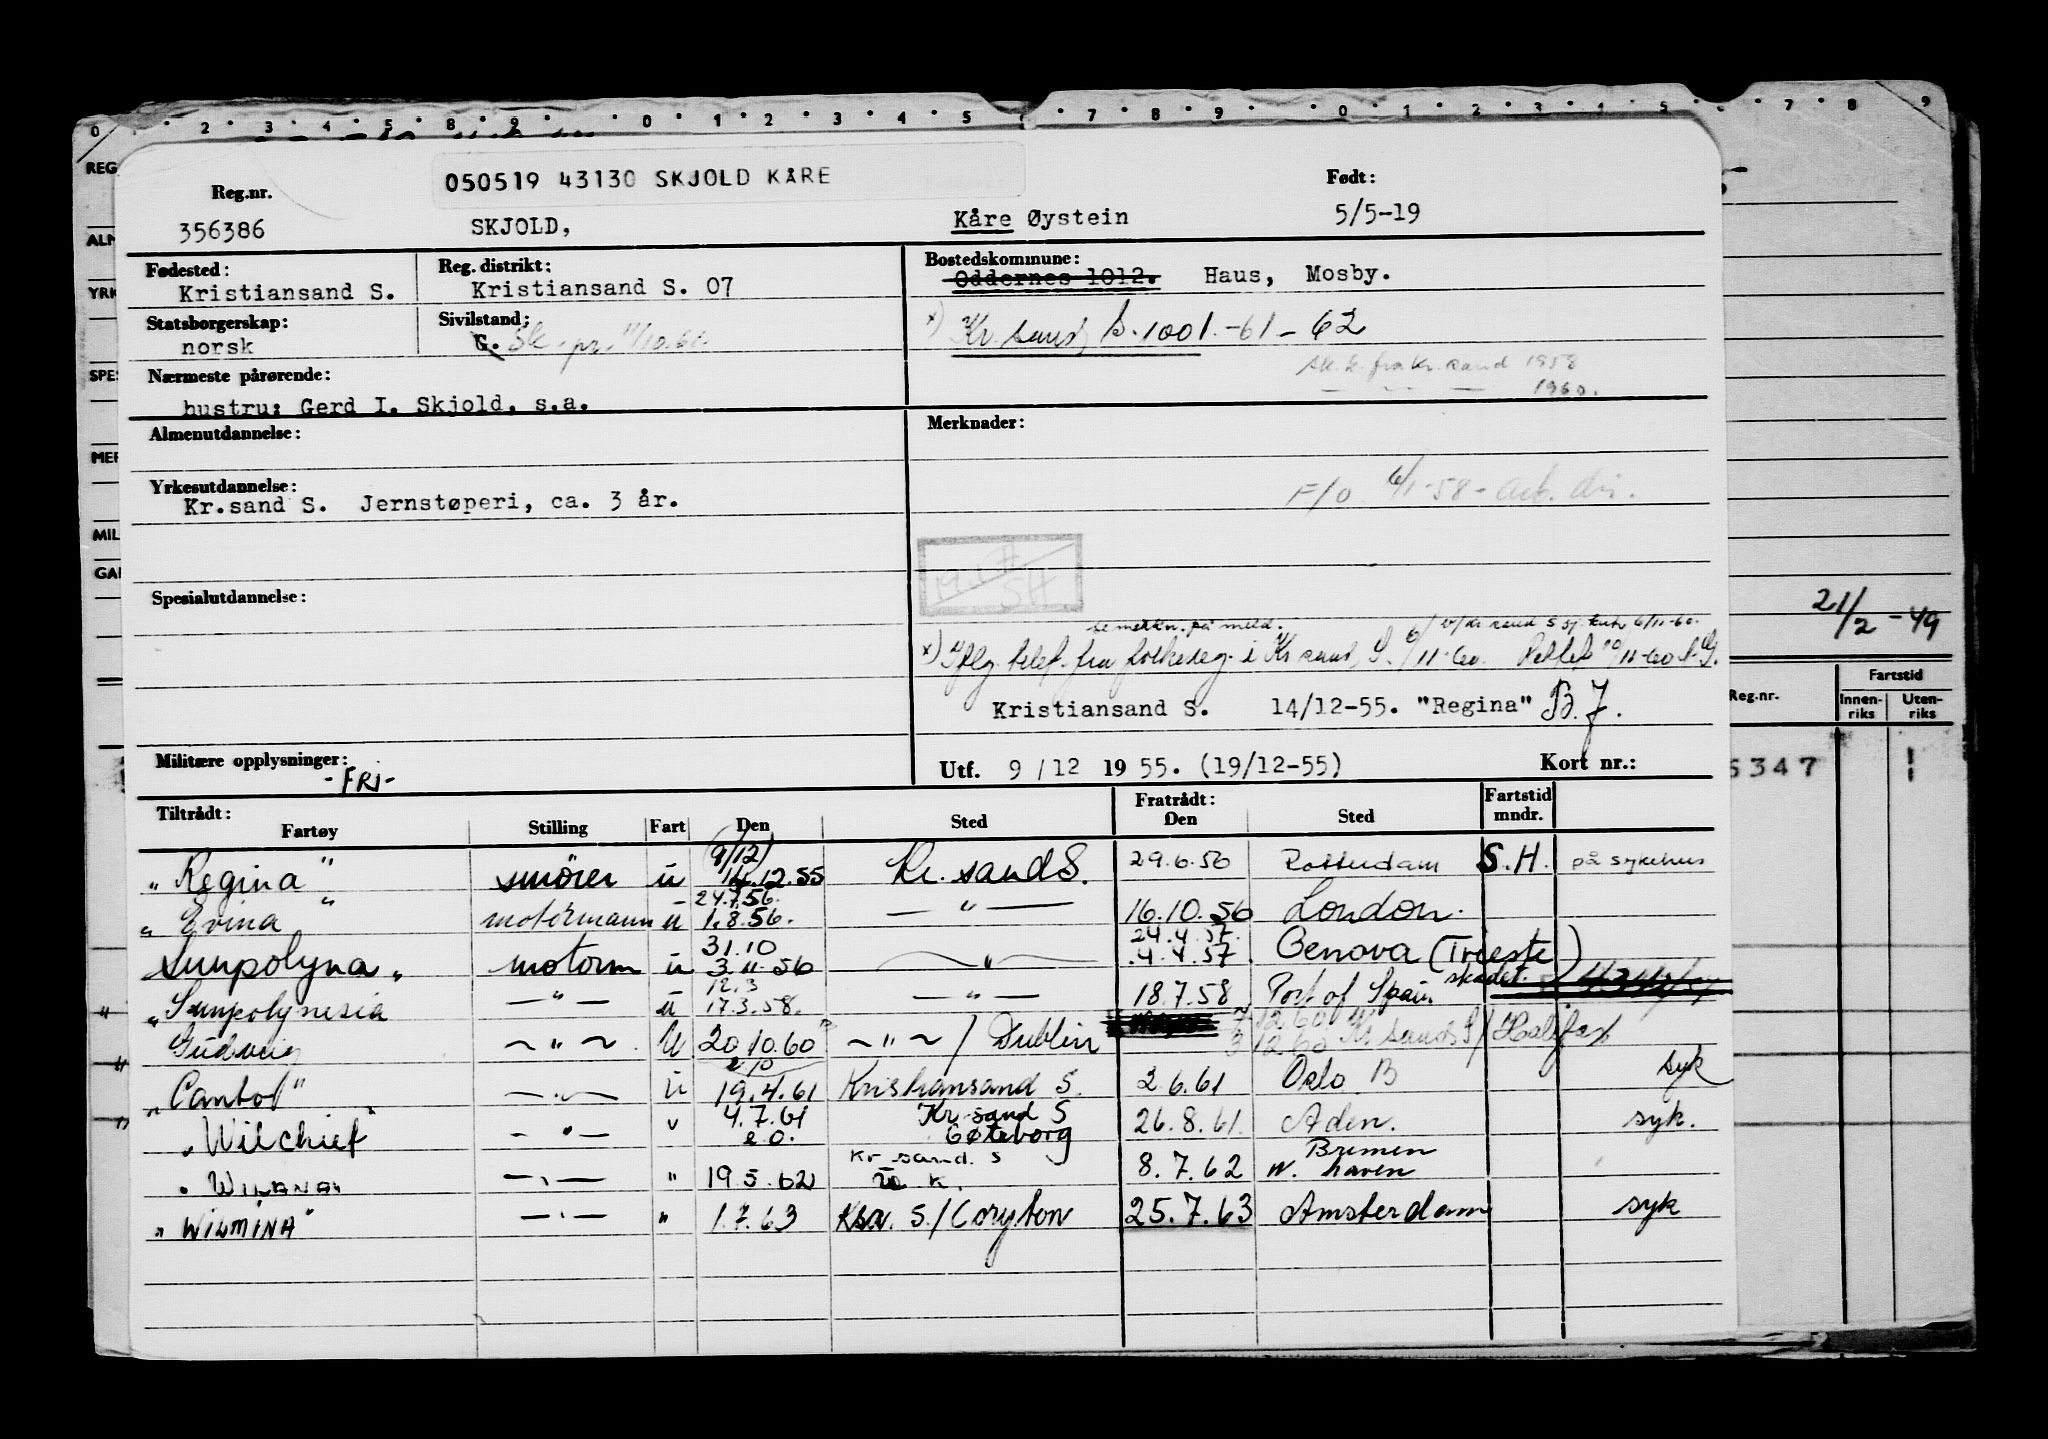 0 2 3 4 5 8 9 0 1 2 3 4 5 7 8 9 0 1 2 3 4 5 7 8 9
REG
ALM
YRK
SPES
MER
MIL
GAR
Reg.nr.
050519 43130 SKJOLD KÅRE
Født:
356386 SKJOLD, Kåre Øystein 5/5-19
Fødested: Reg. distrikt: Bostedskommune:
Kristiansand S. Kristiansand S. 07 Oddernes 1012. Haus, Mosby.
Statsborgerskap: Sivilstand: x) Kr. sand S. 1001.-61-62
norsk G. Sk. pr. 11/10.61.
Nærmeste pårørende: sk.k. fra Kr. sand 1958
— — — 1960.
hustru: Gerd I. Skjold, s.a.
Almenutdannelse: Merknader:
Yrkesutdannelse:
Kr.sand S. Jernstøperi, ca. 3 år. F/O 6/1-58- Arb. dir.
Spesialutdannelse:
21/2-49
se merkn. på meld.
x) Iflg. telef. fra folkereg. i Kr. sand S. 6/11-60.
Kristiansand S. 14/12-55. "Regina" B.J.
Militære opplysninger:
-FRI-
Utf. 9/12 1955. (19/12-55) Kort nr.:
Reg.nr. Fartstid
Innen-riks Uten-riks
5347
Tiltrådt: Fratrådt: Fartstid
Fartøy Stilling Fart Den Sted Den Sted mndr.
(9/12)
"Regina" smører u 14.12.55 Kr. sand S. 29.6.56 Rotterdam S.H. på sykehus
24.7.56.
"Evina" motormann u 1.8.56. — " — 16.10.56 London.
31.10 24.4.57.
Sunpolyna" motorm u 3.11.56 — " — 4.4.57 Genova (Trieste)
12.3 skadet.
"Sunpolynesia — " — u 17.3.58. — " — 18.7.58 Port of Spain
Gudveig ~ " ~ U 20.10.60 ~ " ~ / Dublin 7.12.60
3.12.60 Kr. sand S/ Halifax
"Cantol" — " — u 19.4.61 Kristiansand S. 2.6.61 Oslo B syk
4.7.61 Kr. sand S
"Wilchief" — " — u e.o. Göteborg 26.8.61. Aden. syk.
Kr. sand. S Bremen
"WILANA" — " — " 19.5.62 8.7.62 W. haven
"WILMINA" — " — " 1.7.63 Ksr. S./Coryton 25.7.63 Amsterdam syk